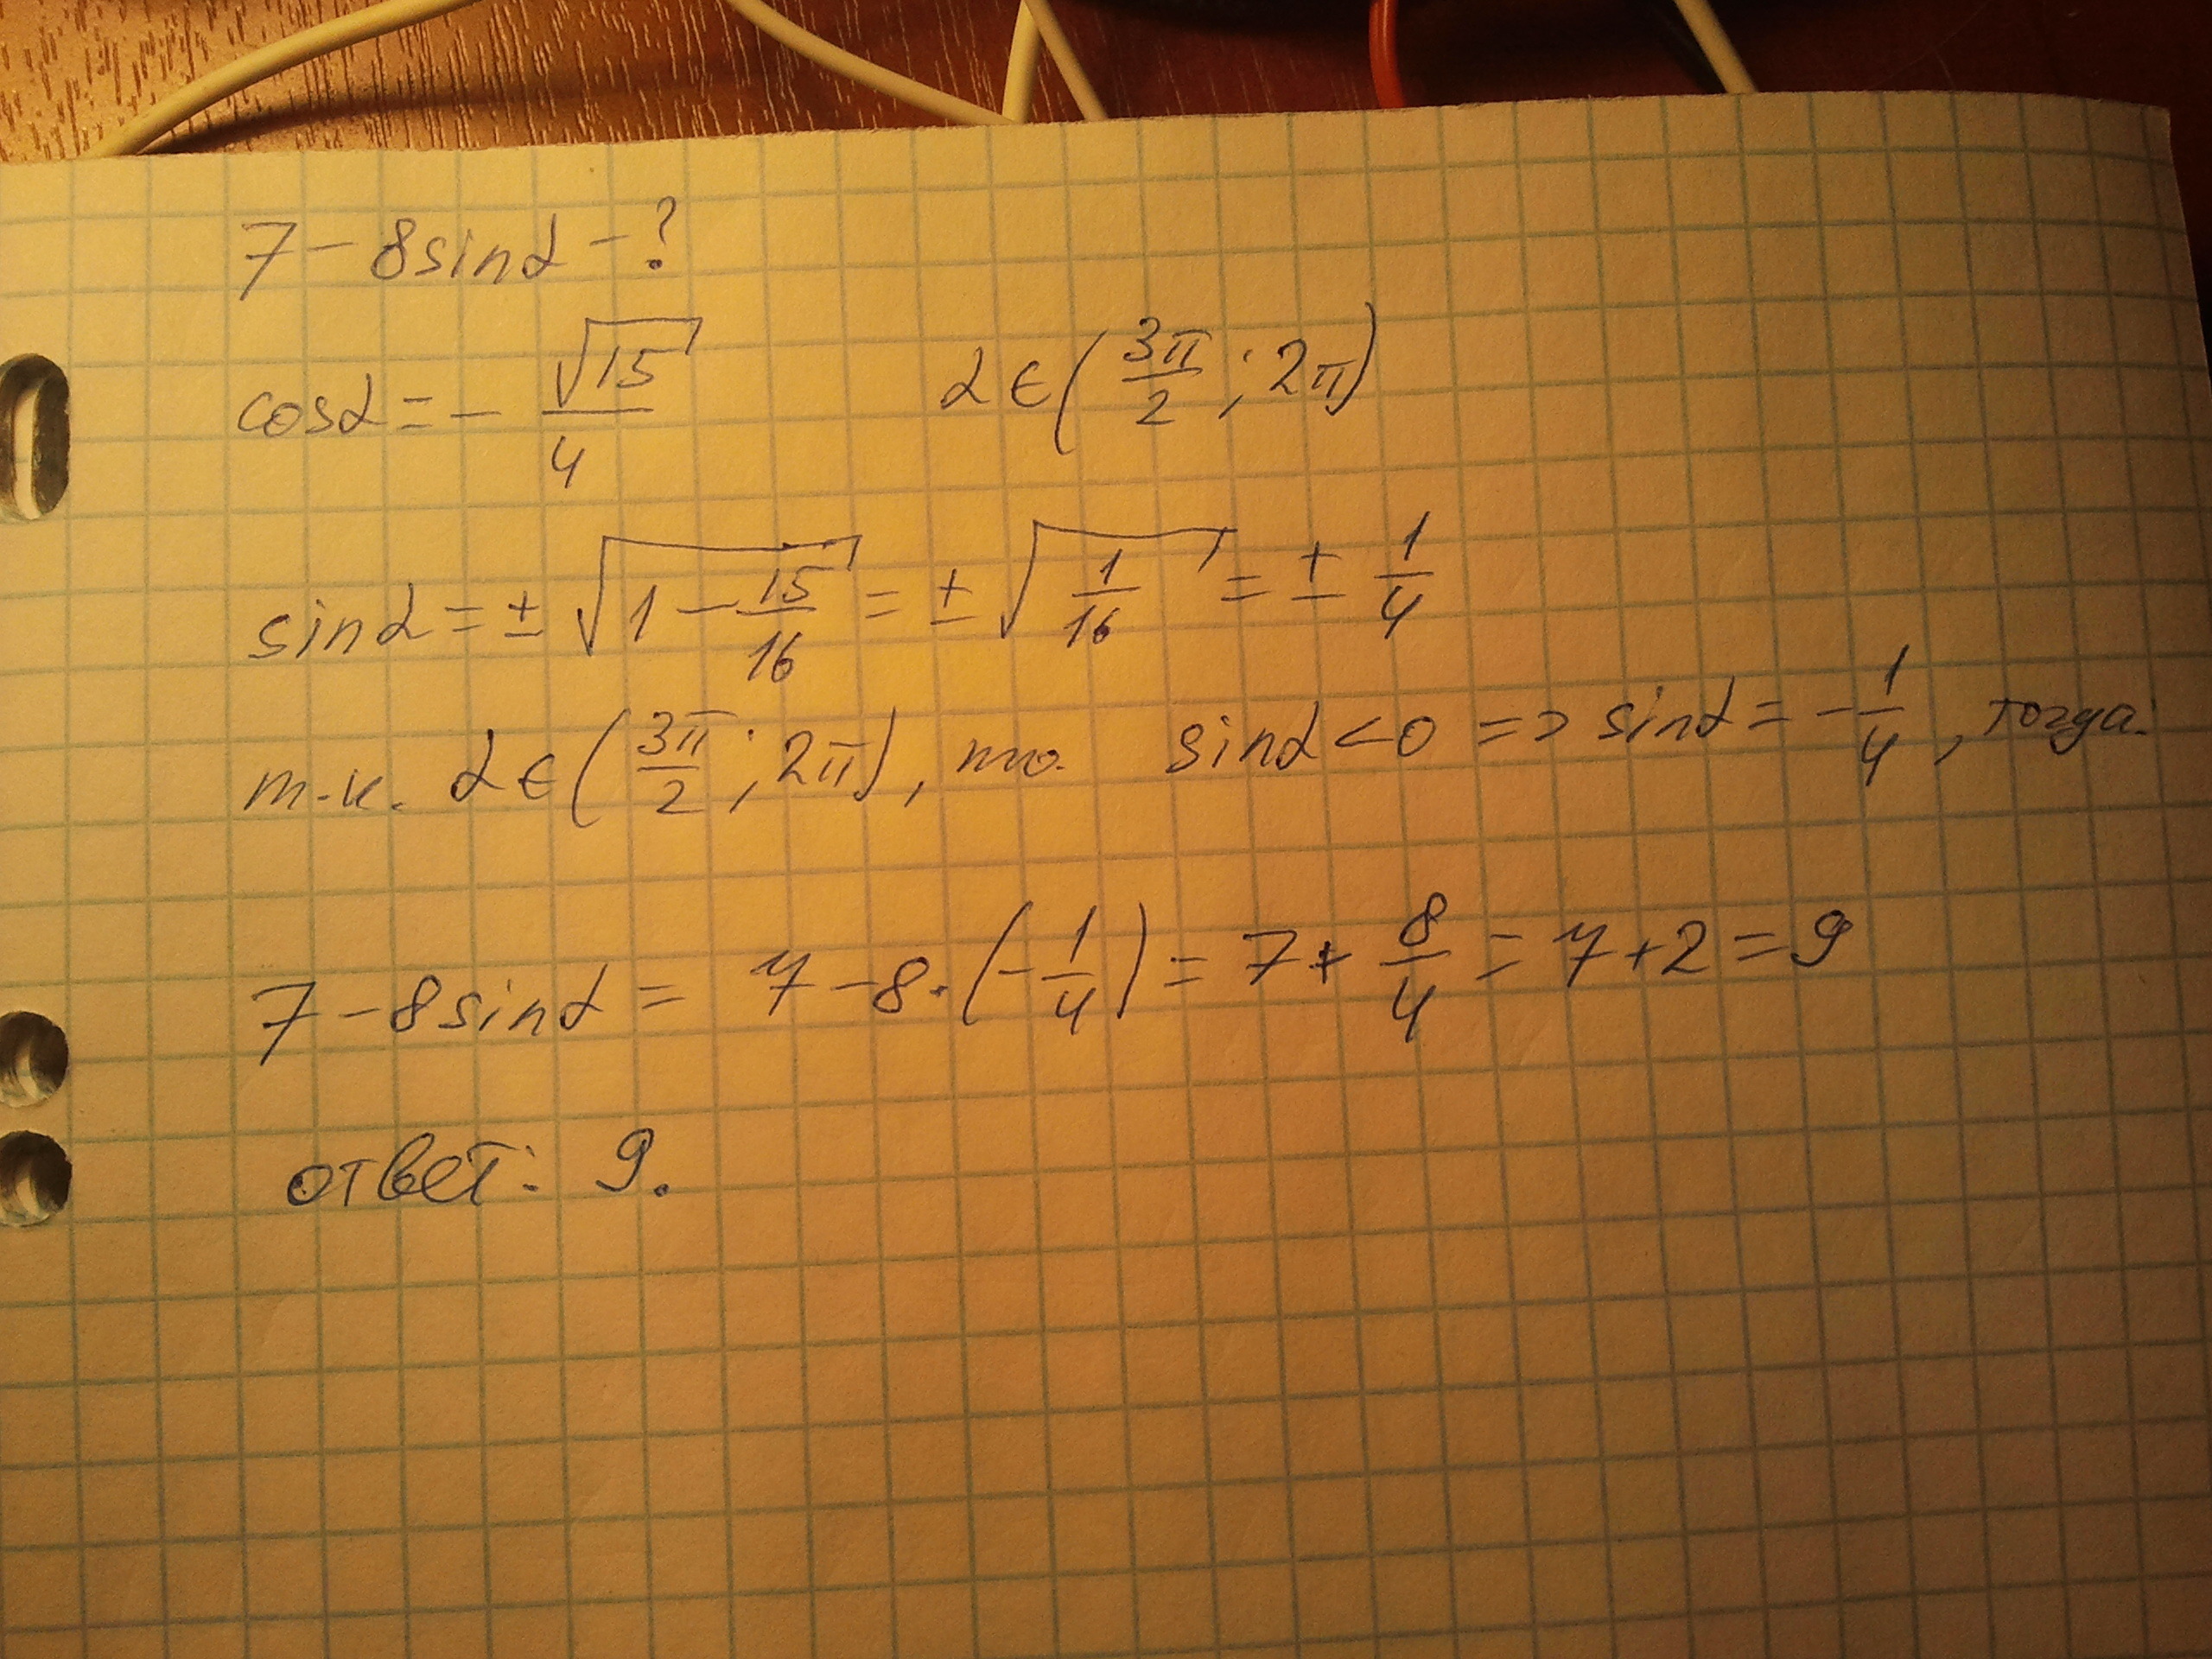 7 - 8sinα - ?
cosα = - √15/4 α ∈ (3π/2 ; 2π)
sinα = ± √(1 - 15/16) = ± √(1/16) = ± 1/4
т.к. α ∈ (3π/2 ; 2π), то sinα < 0 => sinα = - 1/4, тогда:
7 - 8sinα = 7 - 8 · (- 1/4) = 7 + 8/4 = 7 + 2 = 9
ответ: 9.